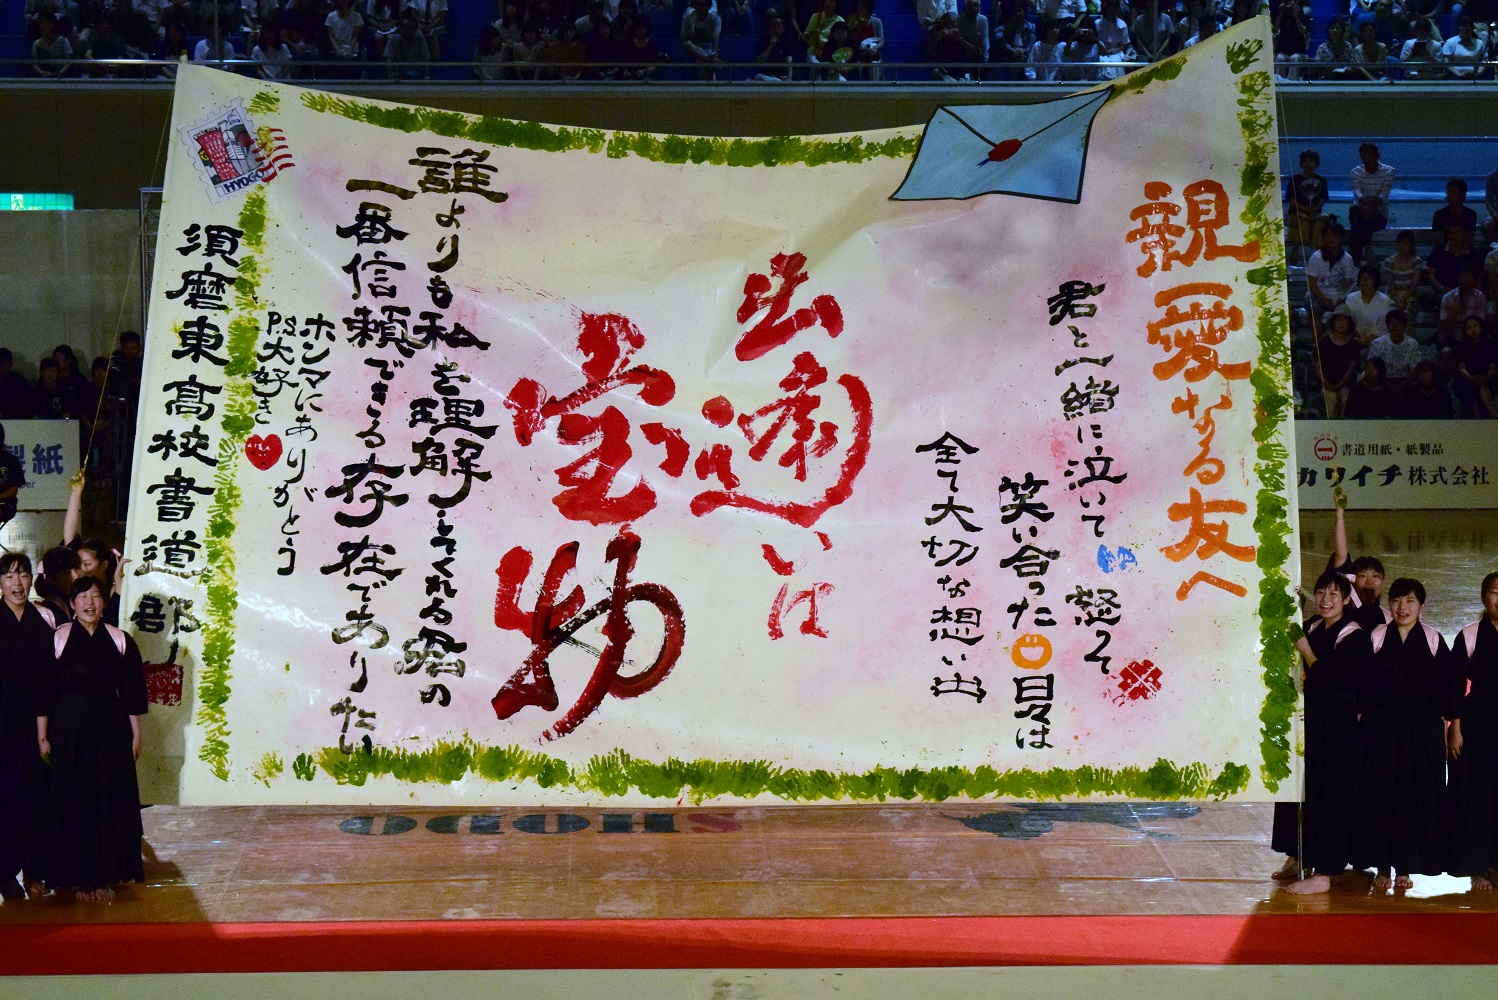 親愛なる友へ
君と一緒に泣いて 怒って
笑い合った日々は
全て大切な想い出
出遇いは
宝物
誰よりも私を理解してくれる君の
一番信頼できる存在でありたい
ホンマにありがとう
P.S.大好き
須磨東高校書道部
HYOGO
書道用紙・紙製品
カワイチ株式会社
製紙
SHODO